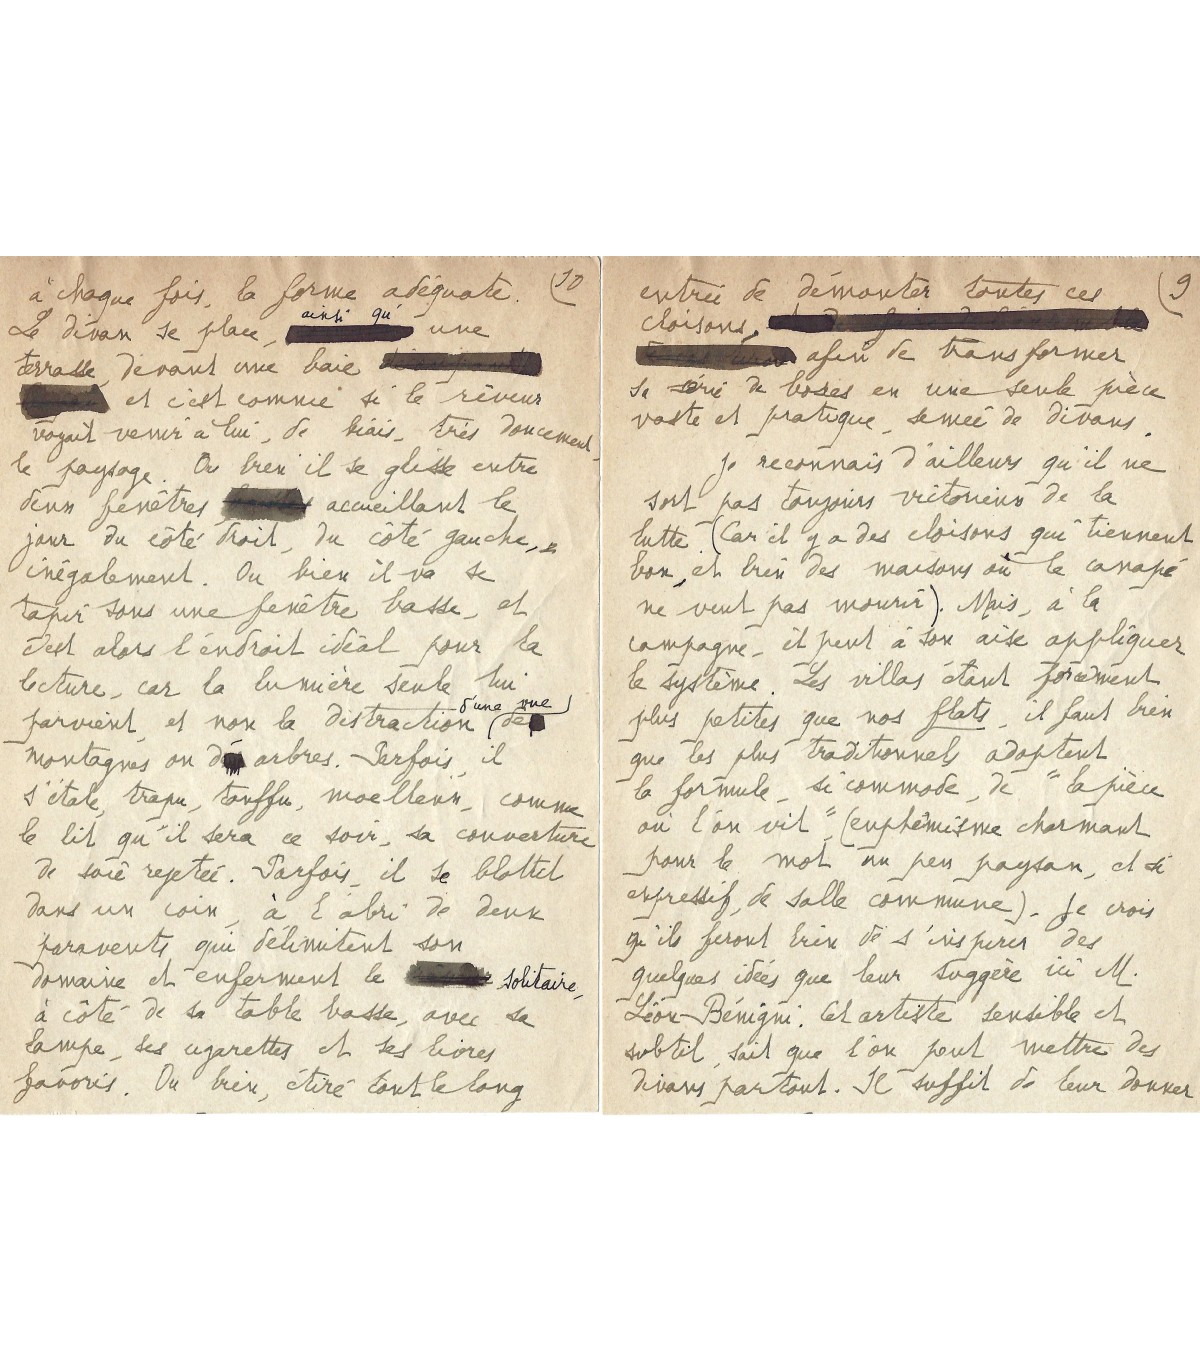 entrée de démonter toutes ces (9
cloisons,
afin de transformer
sa série de boxes en une seule pièce
vaste et pratique, semée de divans.
Je reconnais d'ailleurs qu'il ne
sort pas toujours victorieux de la
lutte. (Car il y a des cloisons qui tiennent
bon, et bien des maisons où le canapé
ne veut pas mourir). Mais, à la
campagne, il peut à son aise appliquer
le système. Les villas étant forcément
plus petites que nos flats, il faut bien
que les plus traditionnels adoptent
la formule, si commode, de "la pièce
où l'on vit", (euphémisme charmant
pour le mot un peu paysan, et si
expressif, de salle commune). Je crois
qu'ils feront bien de s'inspirer des
quelques idées que leur suggère ici M.
Léon-Bénigni. Cet artiste sensible et
subtil, sait que l'on peut mettre des
divans partout. Il suffit de leur donner
à chaque fois, la forme adéquate. (10
Le divan se place, ainsi qu' une
terrasse, devant une baie
et c'est comme si le rêveur
voyait venir à lui, de biais, très doucement,
le paysage. Ou bien il se glisse entre
deux fenêtres accueillant le
jour du côté droit, du côté gauche,
inégalement. Ou bien il va se
tapir sous une fenêtre basse, et
c'est alors l'endroit idéal pour la
lecture, car la lumière seule lui
parvient, et non la distraction d'une vue (de
montagnes ou d' arbres. Parfois, il
s'étale, trapu, touffu, moelleux, comme
le lit qu'il sera ce soir, sa couverture
de soie rejetée. Parfois, il se blottit
dans un coin, à l'abri de deux
paravents qui délimitent son
domaine et enferment le solitaire,
à côté de sa table basse, avec sa
lampe, ses cigarettes et ses livres
favoris. Ou bien, étiré tout le long